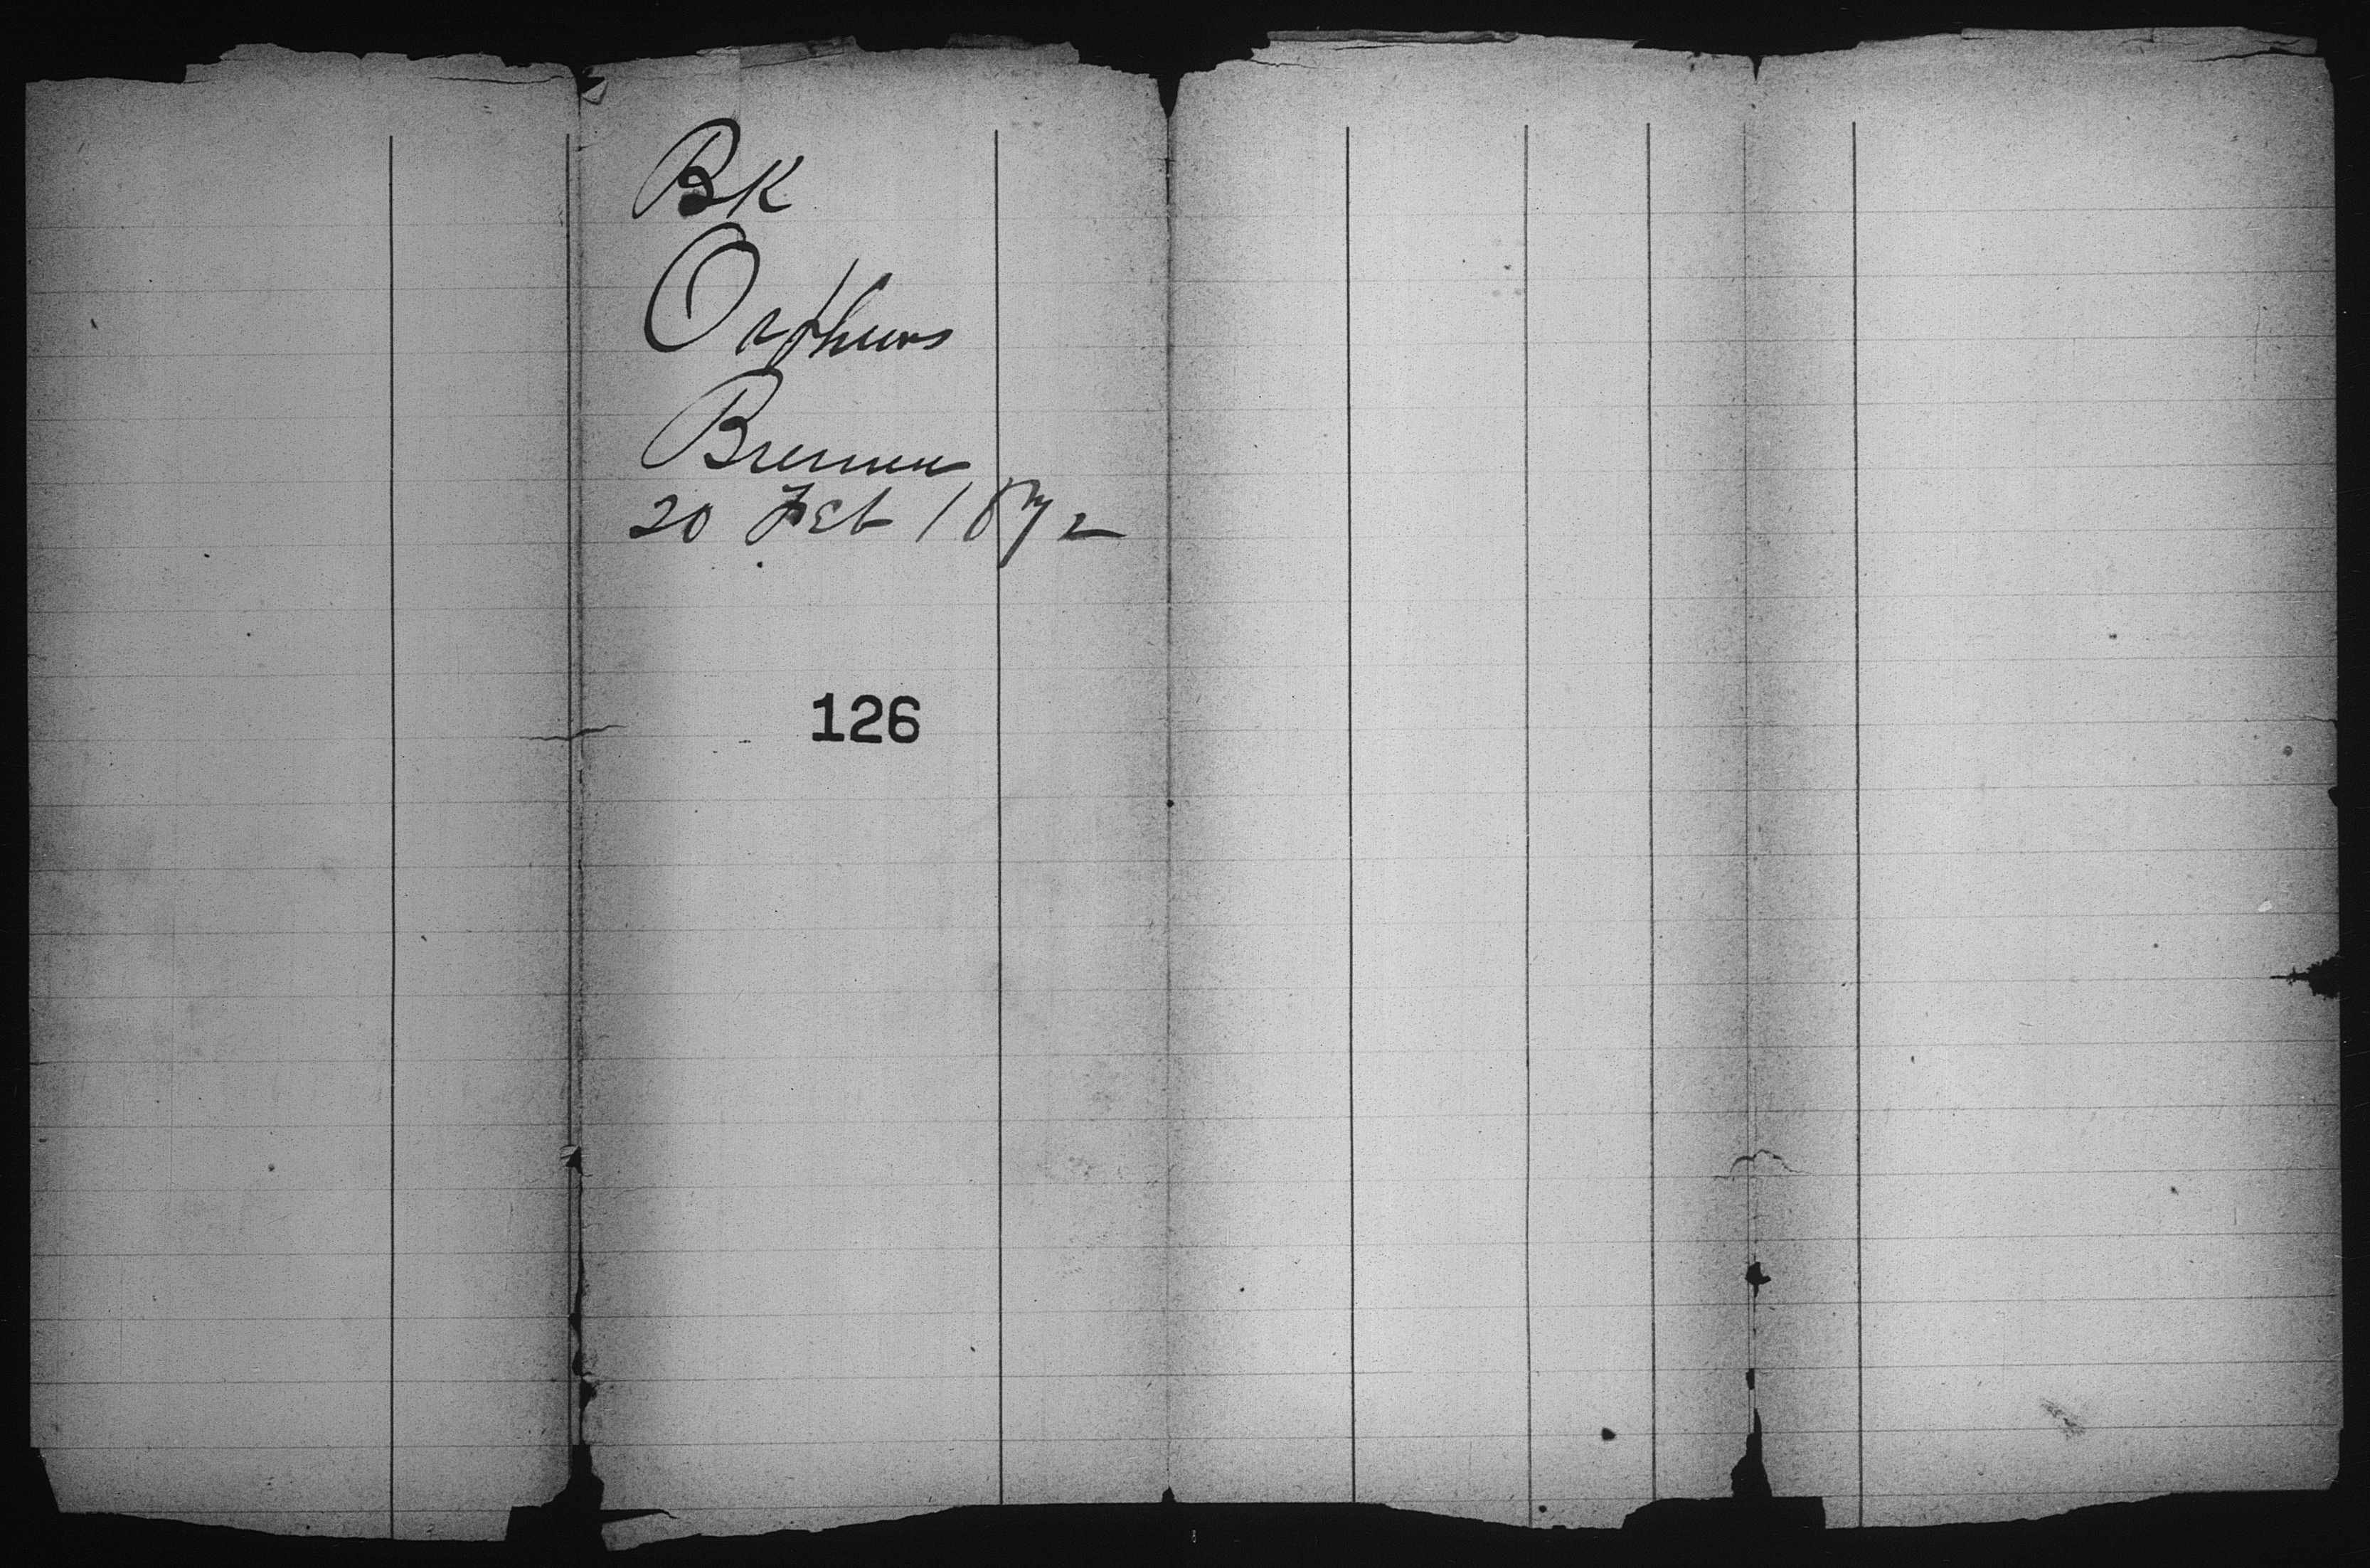 BK
Orpheus
Bremen
20 Feb 1872
126